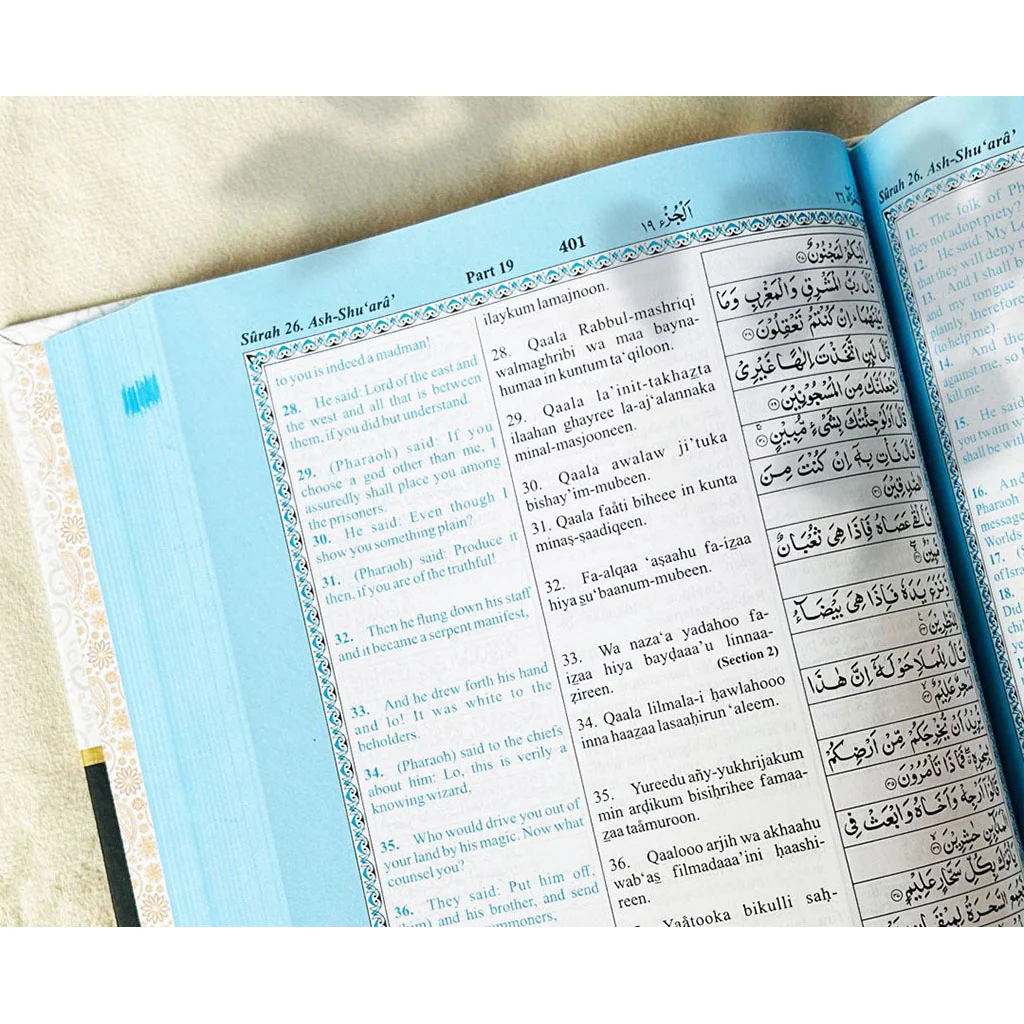 Sûrah 26. Ash-Shu‘arâ’
Part 19
401
اَلْجُزْء ١٩
to you is indeed a madman!
28. He said: Lord of the east and
the west and all that is between
them, if you did but understand.
29. (Pharaoh) said: If you
choose a god other than me, I
assuredly shall place you among
the prisoners.
30. He said: Even though I
show you something plain?
31. (Pharaoh) said: Produce it
then, if you are of the truthful!
32. Then he flung down his staff
and it became a serpent manifest,
33. And he drew forth his hand
and lo! It was white to the
beholders.
34. (Pharaoh) said to the chiefs
about him: Lo, this is verily a
knowing wizard,
35. Who would drive you out of
your land by his magic. Now what
counsel you?
36. They said: Put him off,
and his brother, and send
ilaykum lamajnoon.
28. Qaala Rabbul-mashriqi
walmaghribi wa maa bayna-
humaa in kuntum ta‘qiloon.
29. Qaala la’init-takhazta
ilaahan ghayree la-aj‘alannaka
minal-masjooneen.
30. Qaala awalaw ji’tuka
bishay’im-mubeen.
31. Qaala faâti biheee in kunta
minaṣ-ṣaadiqeen.
32. Fa-alqaa ‘aṣaahu fa-izaa
hiya su‘baanum-mubeen.
33. Wa naza‘a yadahoo fa-
izaa hiya bayḍaaa’u linnaa-
zireen.
(Section 2)
34. Qaala lilmala-i ḥawlahooo
inna haazaa lasaaḥirun ‘aleem.
35. Yureedu añy-yukhrijakum
min arḍikum bisiḥrihee famaa-
zaa taâmuroon.
36. Qaalooo arjih wa akhaahu
wab‘as filmadaaa’ini ḥaashi-
reen.
Yaâtooka bikulli saḥ-
اِلَيْكُمْ لَمَجْنُوْنٌ
قَالَ رَبُّ الْمَشْرِقِ وَالْمَغْرِبِ وَمَا
بَيْنَهُمَا ۭ اِنْ كُنْتُمْ تَعْقِلُوْنَ
قَالَ لَئِنِ اتَّخَذْتَ اِلٰهًا غَيْرِيْ
لَاَجْعَلَنَّكَ مِنَ الْمَسْجُوْنِيْنَ
قَالَ اَوَلَوْ جِئْتُكَ بِشَيْءٍ مُّبِيْنٍ
قَالَ فَاْتِ بِهٖٓ اِنْ كُنْتَ مِنَ
الصّٰدِقِيْنَ
فَاَلْقٰى عَصَاهُ فَاِذَا هِيَ ثُعْبَانٌ
مُّبِيْنٌ
وَّنَزَعَ يَدَهٗ فَاِذَا هِيَ بَيْضَآءُ
لِلنّٰظِرِيْنَ
قَالَ لِلْمَلَاِ حَوْلَهٗٓ اِنَّ هٰذَا
لَسٰحِرٌ عَلِيْمٌ
يُّرِيْدُ اَنْ يُّخْرِجَكُمْ مِّنْ اَرْضِكُمْ
بِسِحْرِهٖ ۖ فَمَاذَا تَاْمُرُوْنَ
قَالُوْٓا اَرْجِهْ وَاَخَاهُ وَابْعَثْ فِي
الْمَدَآئِنِ حٰشِرِيْنَ
يَاْتُوْكَ بِكُلِّ سَحَّارٍ عَلِيْمٍ
فَجُمِعَ السَّحَرَةُ لِمِيْقَاتِ
Sûrah 26. Ash-Shu‘arâ’
11. The folk of
they not adopt piety?
12. He said: My
that they will deny
13. And I shall
and my tongue
plainly, therefore
(to help me).
14. And the
against me, so
kill me.
15. He said
you twain
shall be with
16. And
Pharaoh
message
Worlds
17.
of Isra
18.
Did